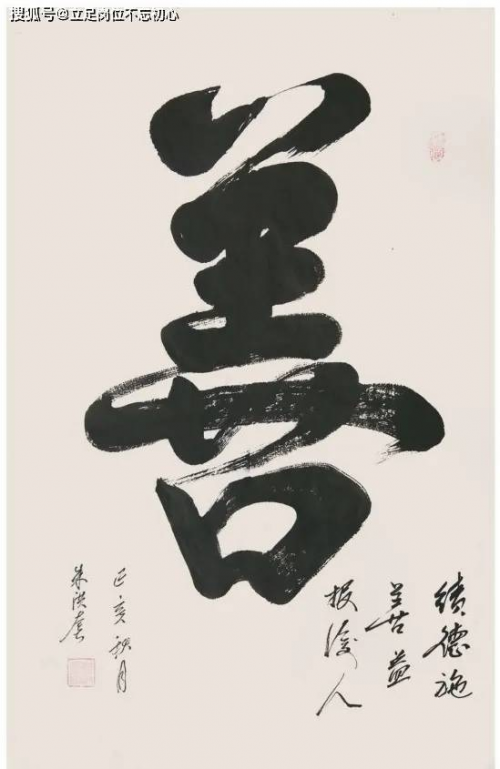 搜狐号@立足岗位不忘初心
善
绩德施
善益
报後人
己亥秋月
朱洪